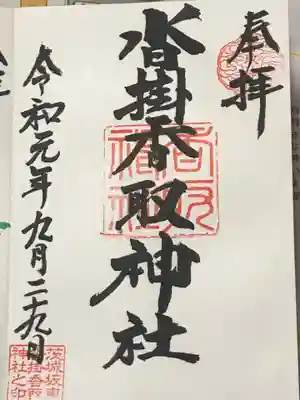 奉拝
沓掛香取神社
令和元年九月二十九日
香取
神社
茨城坂東
沓掛香取
神社之印